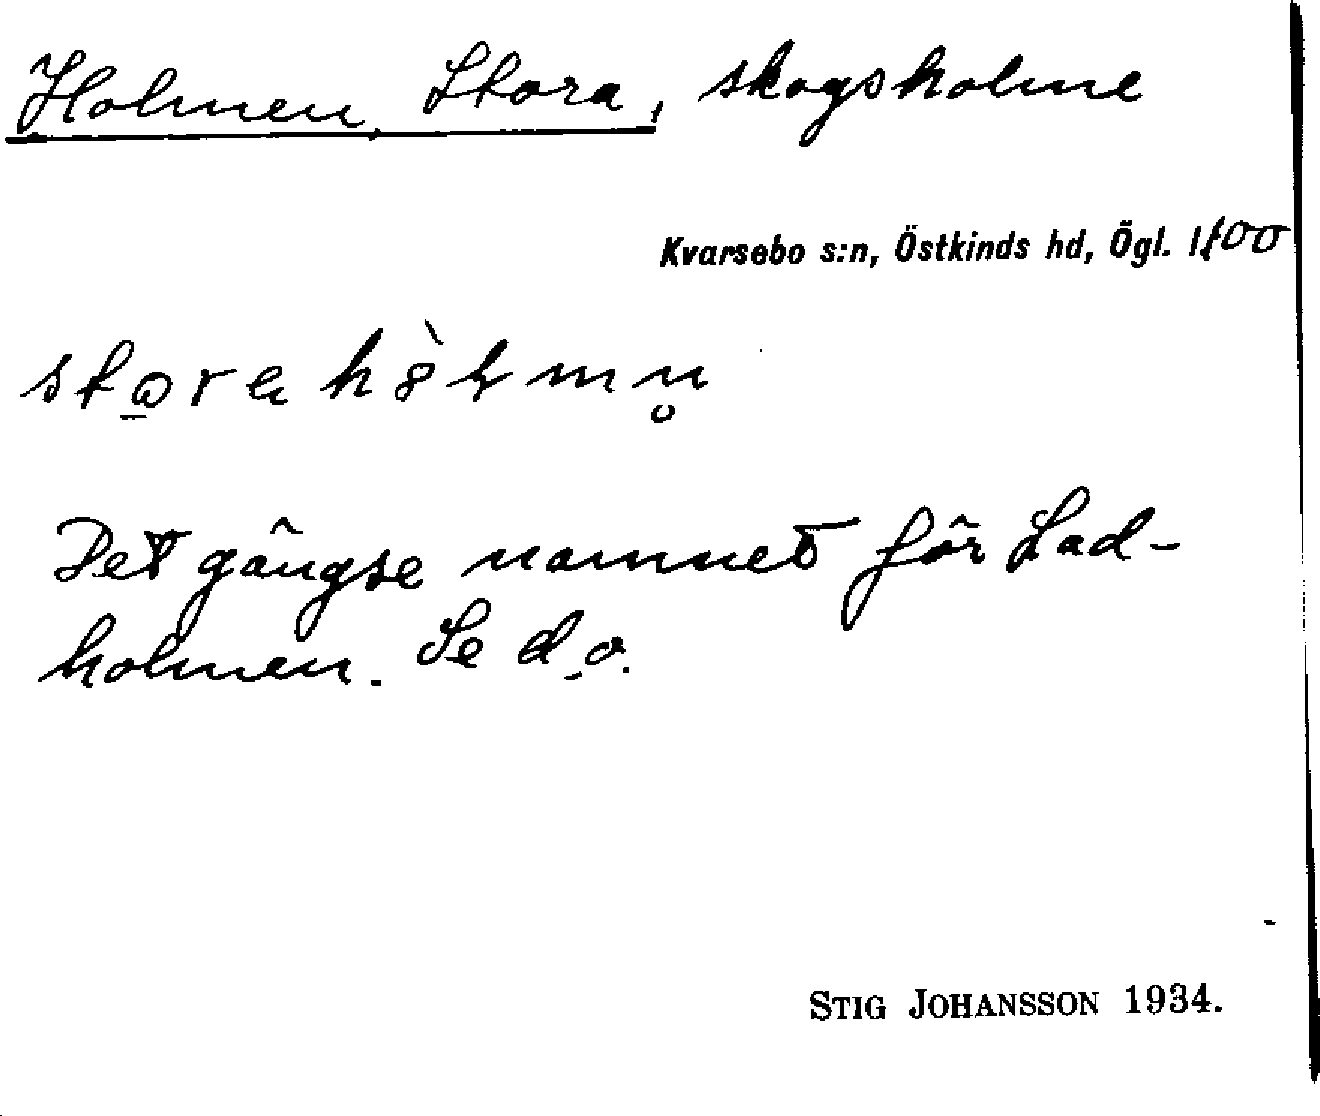 Holmen, Stora, skogsholme
Kvarsebo s:n, Östkinds hd, Ögl. 1/100
Det gängse namnet för Lad-
holmen. Se d.o.
STIG JOHANSSON 1934.